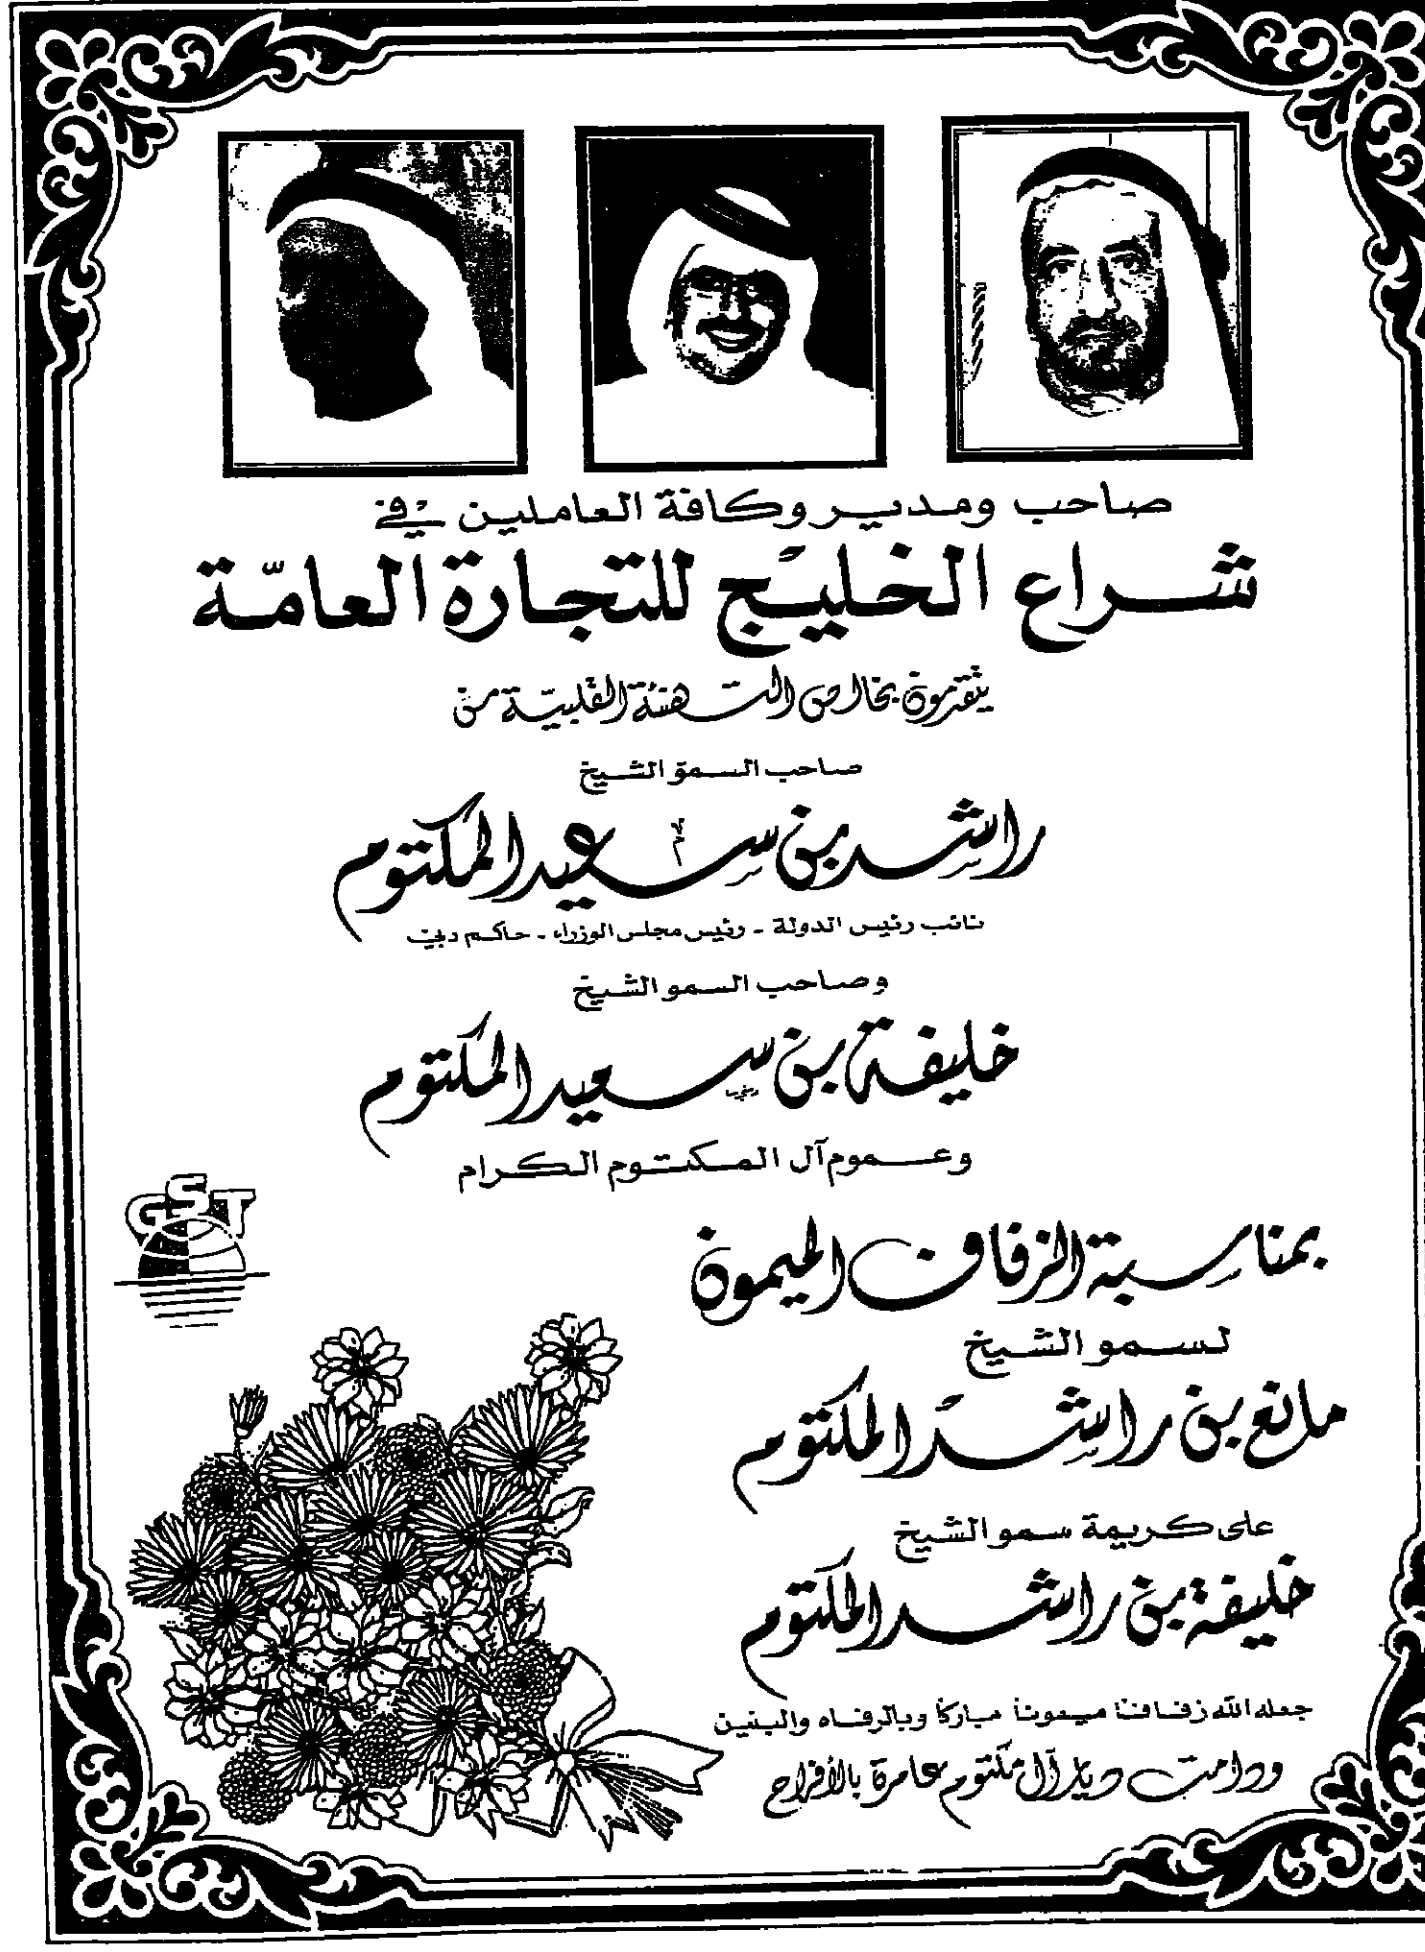 صاحب ومدير وكافة العاملين في
شراع الخليج للتجارة العامّة
يتقدمون بخالص التهنئة القلبيّة من
صاحب السموّ الشيخ
راشد بن سعيد المكتوم
نائب رئيس الدولة - رئيس مجلس الوزراء - حاكم دبي
وصاحب السمو الشيخ
خليفة بن سعيد المكتوم
وعموم آل المكتوم الكرام
GST
بمناسبة الزفاف الميمون
لسمو الشيخ
مانع بن راشد المكتوم
على كريمة سمو الشيخ
خليفة بن راشد المكتوم
جعله الله زفافنا ميمونا مباركا وبالرفاه والبنين
ودامت ديار آل مكتوم عامرة بالأفراح